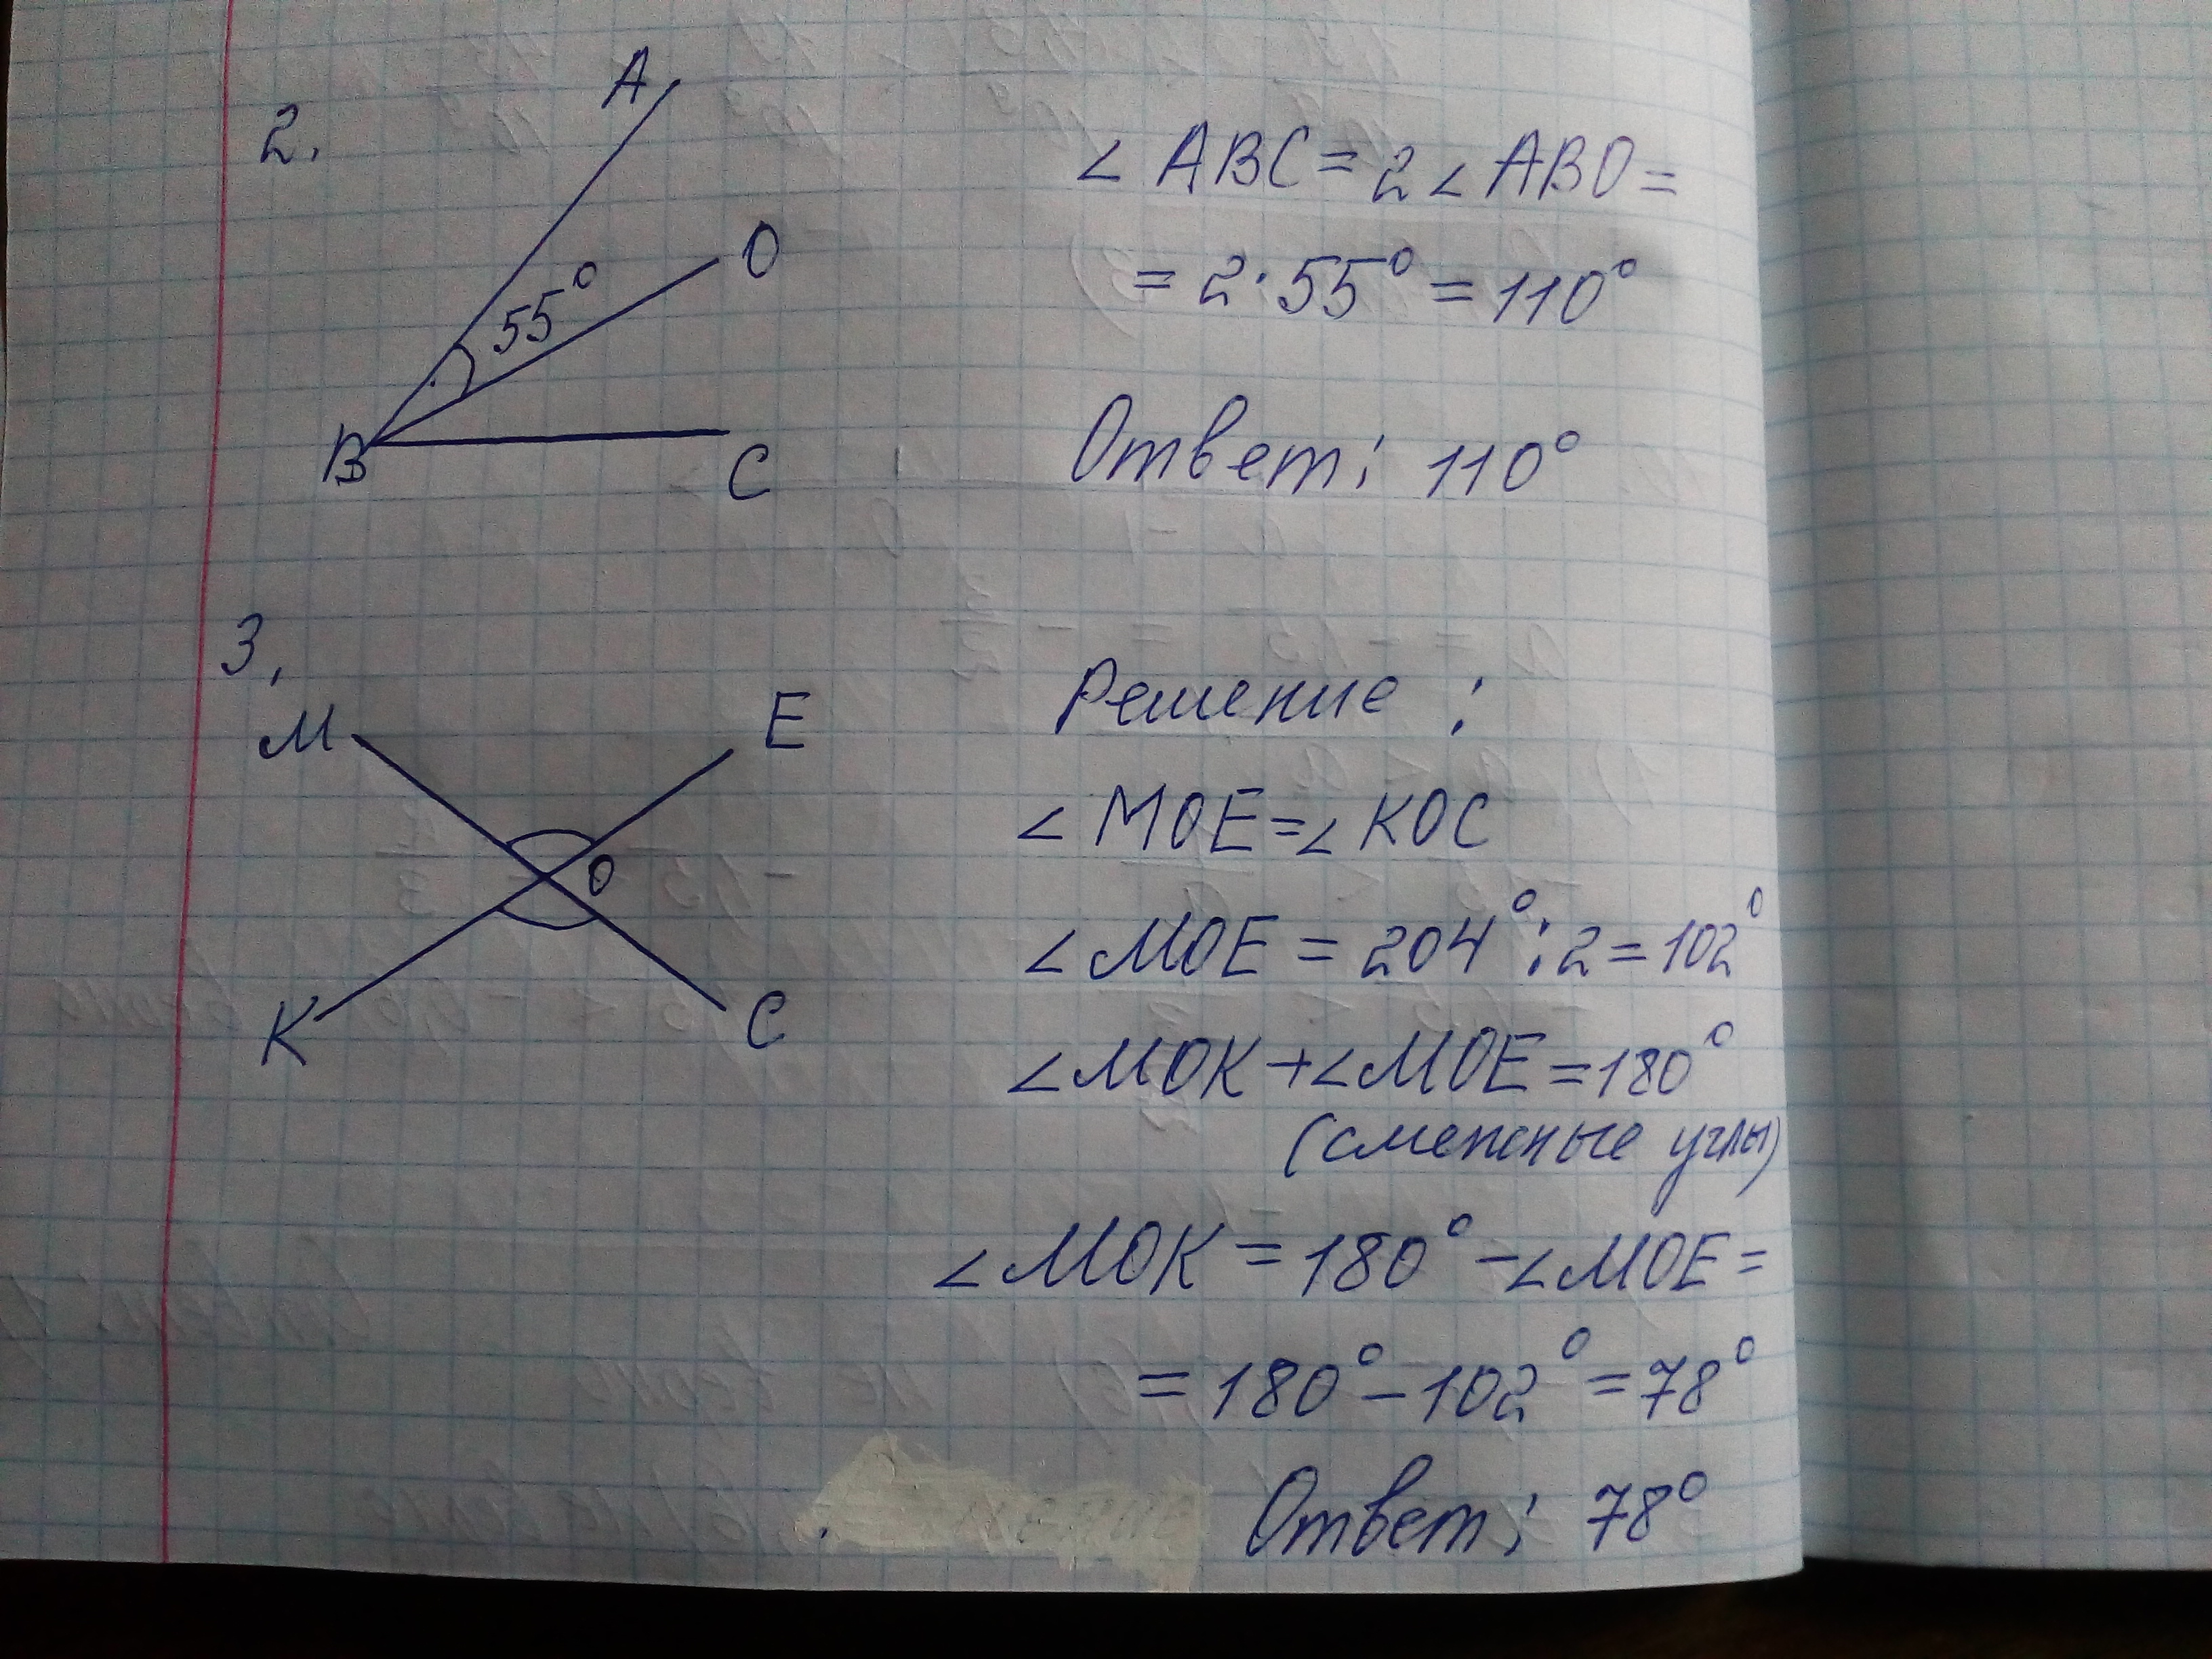 2.
A
O
55°
B
C
∠ ABC = 2 ∠ ABO =
= 2·55° = 110°
Ответ: 110°
3.
M
E
O
K
C
Решение:
∠ MOE = ∠ KOC
∠ MOE = 204° : 2 = 102°
∠ MOK + ∠ MOE = 180°
(смежные углы)
∠ MOK = 180° - ∠ MOE =
= 180° - 102° = 78°
Ответ: 78°